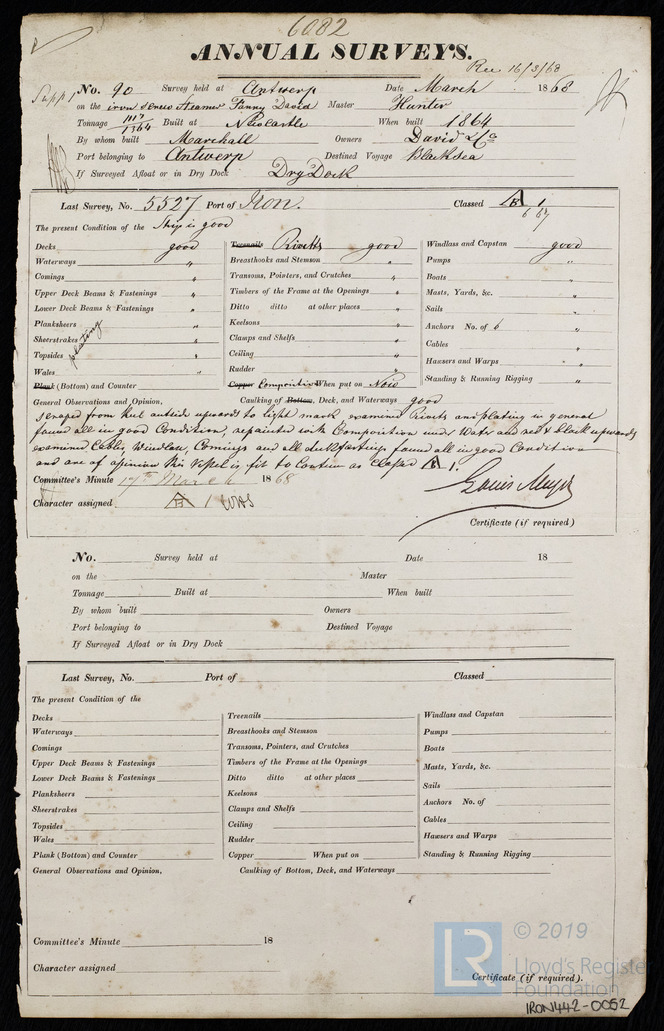 6082
ANNUAL SURVEYS.
Rec 16/3/68
Suppt No. 90 Survey held at Antwerp Date March 1868
on the iron Screw Steamer Fanny David Master Hunter
Tonnage 1364 Built at Newcastle When built 1864
By whom built Marshall Owners David & Co
Port belonging to Antwerp Destined Voyage Black Sea
If Surveyed Afloat or in Dry Dock Dry Dock
Last Survey, No. 5527 Port of Iron. Classed A 1
6 67
The present Condition of the Ship is good
Decks good Treenails Rivetts good Windlass and Capstan good
Waterways " Breasthooks and Stemson " Pumps "
Comings " Transoms, Pointers, and Crutches " Boats "
Upper Deck Beams & Fastenings " Timbers of the Frame at the Openings " Masts, Yards, &c. "
Lower Deck Beams & Fastenings " Ditto ditto at other places " Sails "
Planksheers " Keelsons " Anchors No. of 6 "
Sheerstrakes plating " Clamps and Shelfs " Cables "
Topsides " Ceiling " Hawsers and Warps "
Wales " Rudder " Standing & Running Rigging "
Plank (Bottom) and Counter Copper Composition When put on Now
General Observations and Opinion, Caulking of Bottom, Deck, and Waterways good
scraped from Keel outside upwards to light mark examined Rivets and plating in general
found all in good Condition, repainted with Composition under Water and red & black upwards
examined Cables, Windlass, Comings and all found all in good Condition
and are of opinion this Vessel is fit to Continue as classed A 1.
Louis Meyer
Committee's Minute 17th March 1868
Character assigned A 1
Certificate (if required)
No. Survey held at Date 18
on the Master
Tonnage Built at When built
By whom built Owners
Port belonging to Destined Voyage
If Surveyed Afloat or in Dry Dock
Last Survey, No. Port of Classed
The present Condition of the
Decks Treenails Windlass and Capstan
Waterways Breasthooks and Stemson Pumps
Comings Transoms, Pointers, and Crutches Boats
Upper Deck Beams & Fastenings Timbers of the Frame at the Openings Masts, Yards, &c.
Lower Deck Beams & Fastenings Ditto ditto at other places Sails
Planksheers Keelsons Anchors No. of
Sheerstrakes Clamps and Shelfs Cables
Topsides Ceiling Hawsers and Warps
Wales Rudder Standing & Running Rigging
Plank (Bottom) and Counter Copper When put on
General Observations and Opinion, Caulking of Bottom, Deck, and Waterways
Committee's Minute 18
Character assigned
Certificate (if required).
LR © 2019
Lloyd's Register
Foundation
IRON442-0052